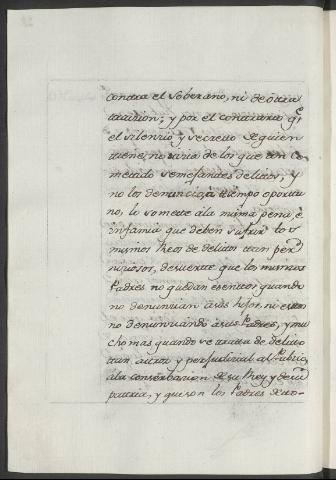 contra el soberano, ni de otra
traicion; y por el contrario q.e
el silenzio y secreto de quien
tiene noticia de los que han co-
metido semejantes delitos, y
no los denuncia a tiempo oportu-
no, lo somete ala misma pena è
infamia que deben sufrir los
mismos Reos de delitos tan per-
niciosos, desuerte que los mismos
Padres no quedan esentos quando
no denuncian asus hijos, ni estos
no denunciando asus Padres, y mu-
cho mas quando se trata de delito
tan atroz y perjudicial al Publico,
ala conserbacion de su Rey y de su
patria, y que son los Padres de to-